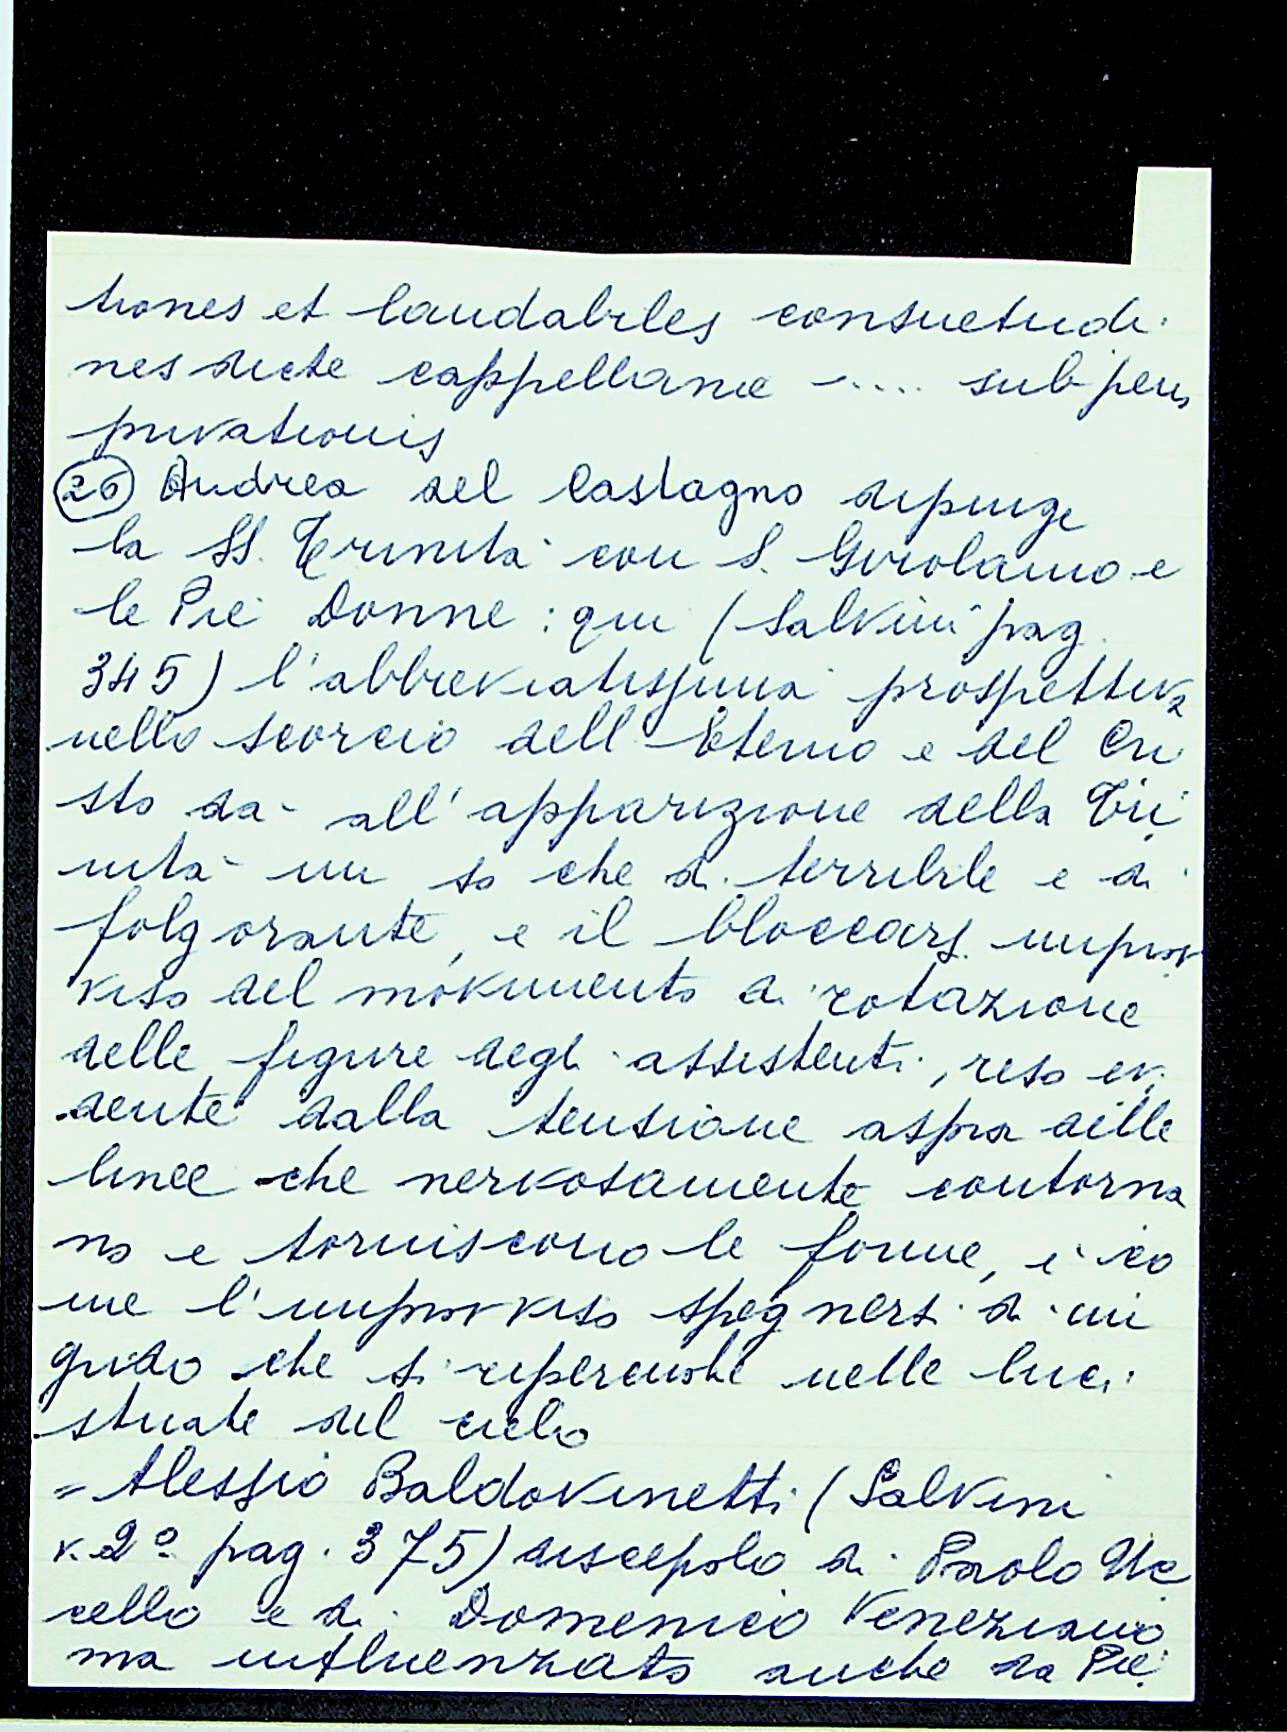 tiones et laudabiles consuetudi
nes dicte cappellanie - .... sub pena
privationis
(26) Andrea del Castagno dipinge
la SS. Trinità con S. Girolamo e
le Pie Donne : qui (Salvini pag.
345) l'abbreviatissima prospettiva
nello scorcio dell'Eterno e del Cri
sto dà all'apparizione della Tri
nità un so che di terribile e di
folgorante, e il bloccarsi improv
viso del movimento di rotazione
delle figure degli assistenti, reso evi
dente dalla tensione aspra delle
linee che nervosamente contorna
no e torniscono le forme, è co
me l'improvviso spegnersi di un
grido che si ripercuote nelle luci
striate del cielo
= Alessio Baldovinetti (Salvini
v. 2º pag. 375) discepolo di Paolo Uc
cello e di Domenico Veneziano
ma influenzato anche da Pie